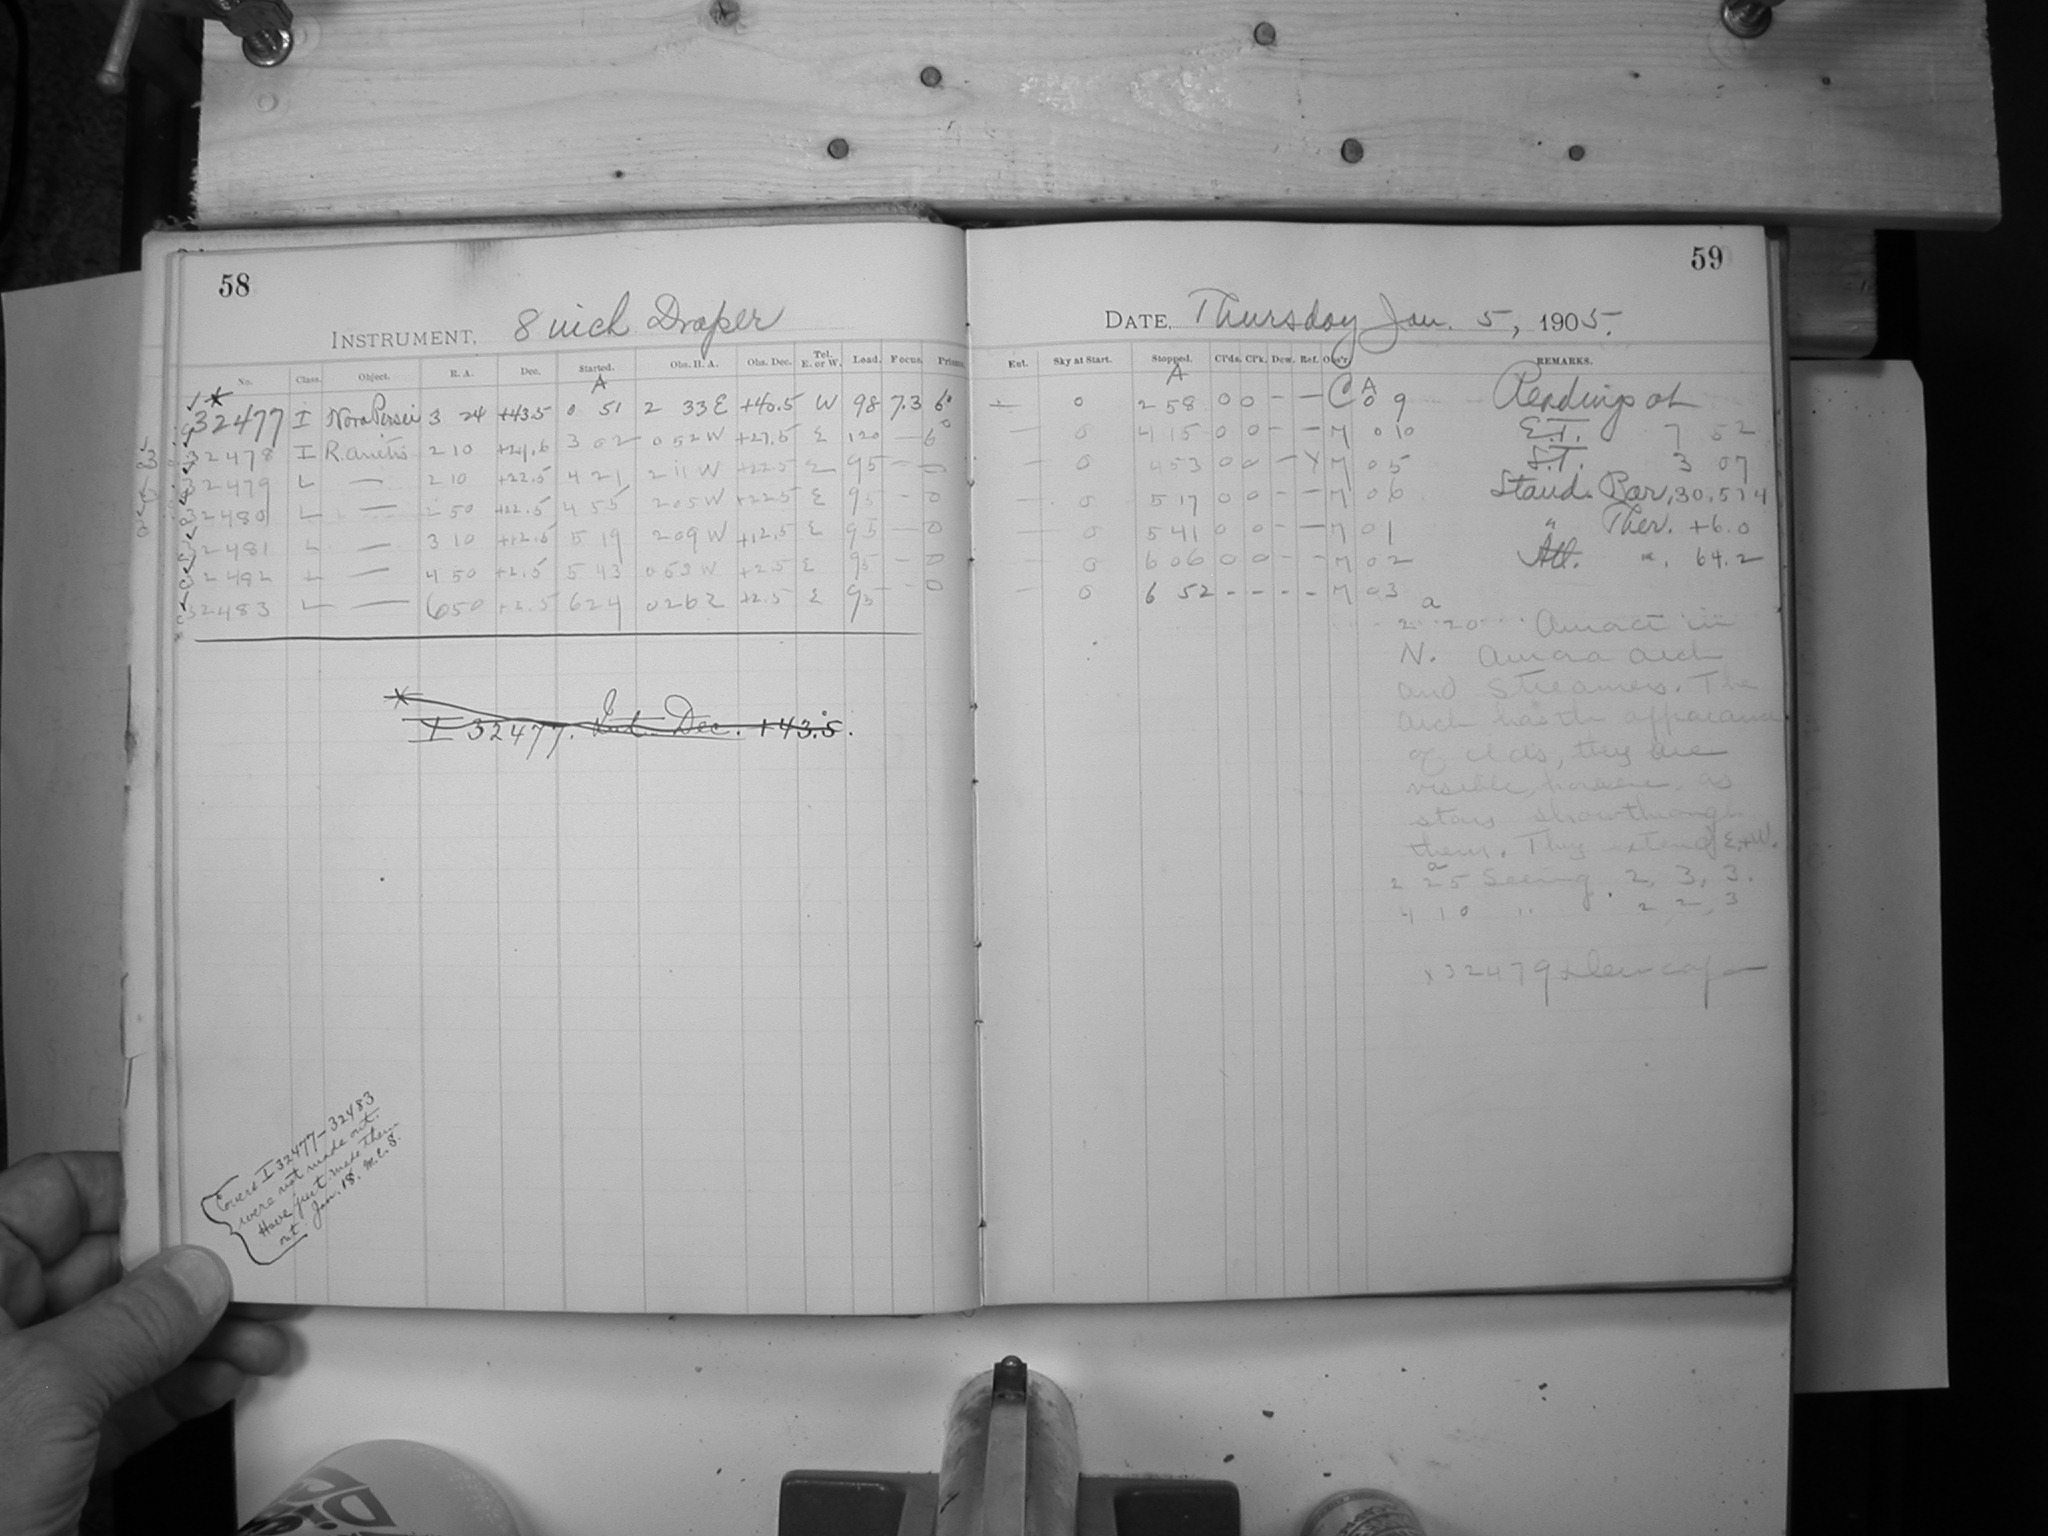 58
INSTRUMENT, 8 inch Draper
No. Class. Object. R. A. Dec. Started. Obs. H. A. Obs. Dec. Tel. E. or W. Load. Focus. Prism.
A
32477 I Nova Persei 3 24 +43.5 0 51 2 33 E +40.5 W 98 7.3 6°
32478 I R. arietis 2 10 3 02 0 52 W +27.5 E 120 — 6°
32479 L — 2 10 +22.5 4 21 2 11 W +22.5 E 95 — 0
32480 L — 2 50 +22.5 4 55 2 05 W +22.5 E 95 - 0
32481 L — 3 10 +12.5 5 19 2 09 W +12.5 E 95 - 0
L — 4 50 +2.5 5 43 0 53 W +2.5 E 95 - 0
32483 L — 6 50 +2.5 6 24 0 26 E +2.5 E 95 - 0
* I 32477. Dec. +43.5.
Covers I 32477–32483
were not made out.
Have just made them
out. Jan. 18. M.E.S.
59
DATE, Thursday Jan. 5, 1905.
Ext. Sky at Start. Stopped. Cl'ds. Cl'k. Dew. Ref. Obs'r. REMARKS.
A
0 2 58 0 0 - - C A 0 9 Readings at
— 0 4 15 0 0 - - M 0 10 E.T. 7 52
— 0 4 53 0 0 - Y M 0 5 S.T. 3 07
— 0 5 17 0 0 - - M 0 6 Stand. Bar, 30.514
— 0 5 41 0 0 - - M 0 1 " Ther. +6.0
— 0 6 06 0 0 - - M 0 2 Att. ". 64.2
— 0 6 52 - - - - M 0 3
2 20 in
N. Aurora arch
and streamers. The
arch has the appearance
of clds, they are
visible, however, as
stars show through
them. They extend E.+W.
2 25 Seeing 2, 3, 3.
4 10 " 2, 2, 3
x 32479 Dew cap